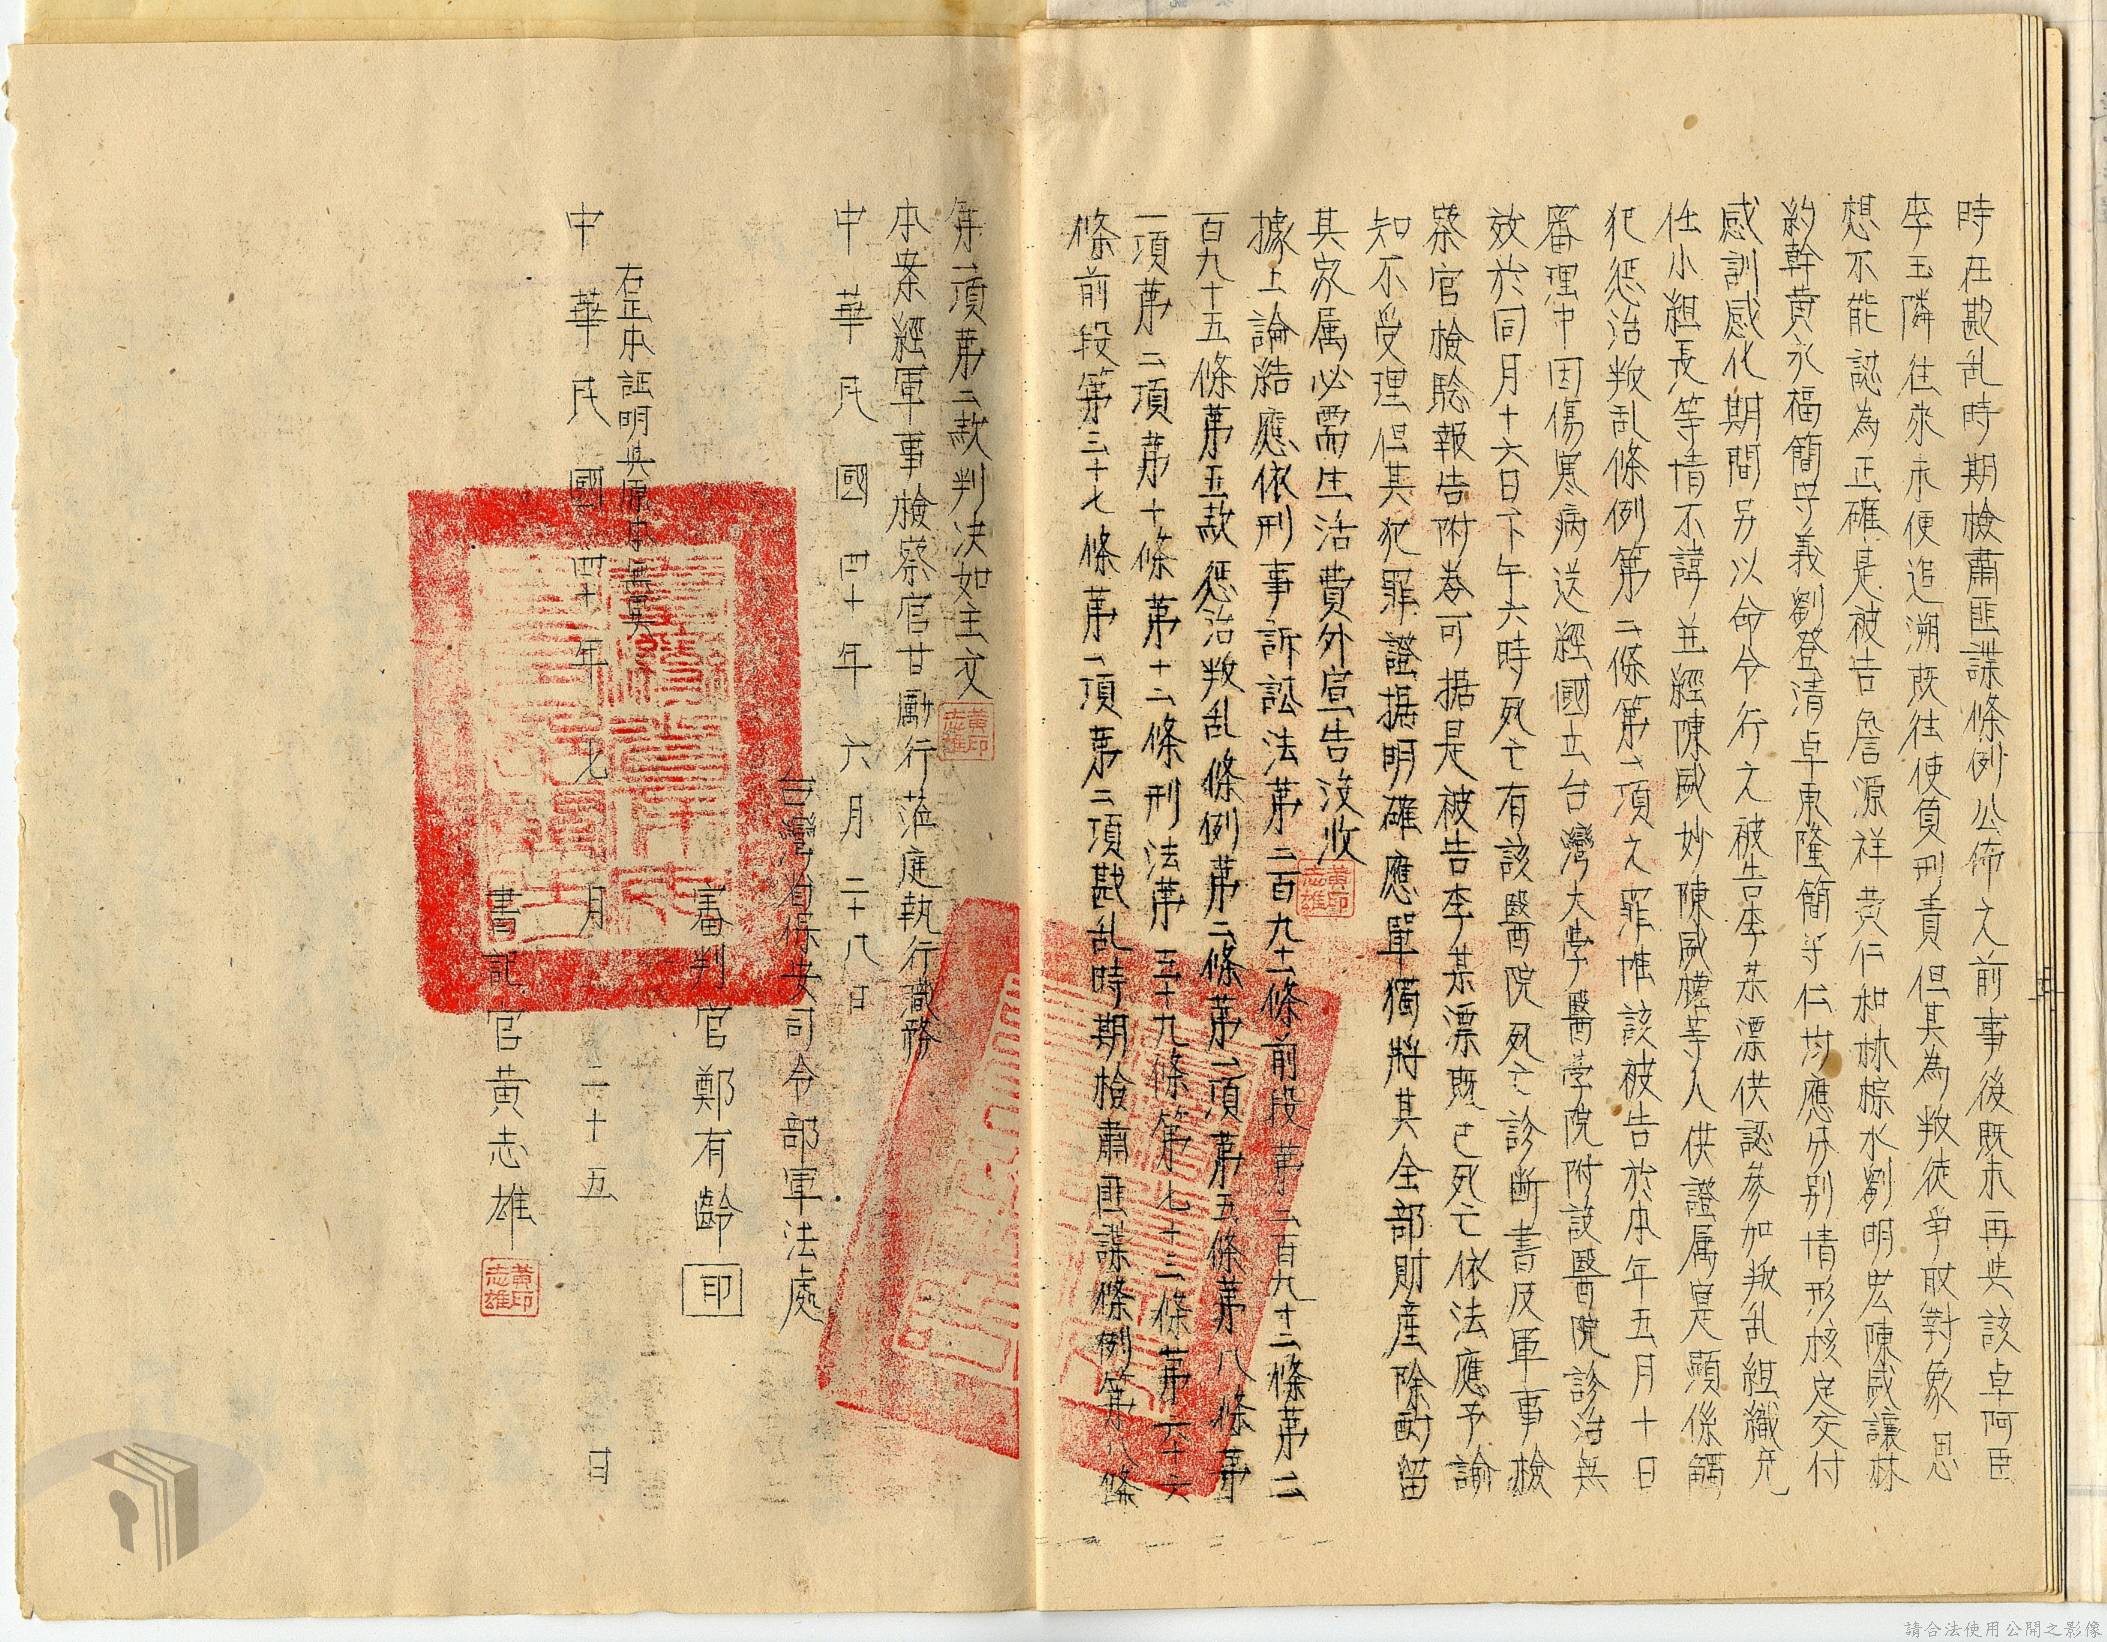 時在戡乱時期檢肅匪諜條例公佈之前事後既未再與該卓阿臣
李玉隣往來示便追溯既往使負刑責但其為叛徒爭取對象思
想不能認為正確是被告詹源祥黄仁和林棕水劉明宏陳戚讓林
約幹黄永福簡守義劉登清卓東隆簡守仁均應分別情形核定交付
感訓感化期間另以命令行之被告李某漂供認參加叛乱組織充
任小組長等情不諱並經陳戚妙陳戚樓等人供證属寔顯係觸
犯惩治叛乱條例第二條第一項之罪惟該被告於本年五月十日
審理中因傷寒病送經國立台灣大學醫學院附設醫院診治無
效於同月十六日下午六時死亡有該醫院死亡診斷書及軍事檢
察官檢驗報告附卷可据是被告李某漂既已死亡依法應予諭
知不受理但其犯罪證据明確應單獨將其全部財產除酌留
其家属必需生活費外宣告沒收
據上論結應依刑事訴訟法第二百九十一條前段第二百九十二條第二
百九十五條第五款惩治叛乱條例第二條第一項第五條第八條第
一項第二項第十條第十二條刑法第五十九條第七十三條第六十六
條前段第三十七條第一項第二項戡乱時期檢肅匪諜條例第八條
第一項第二款判决如主文
本案經軍事檢察官甘勵行蒞庭執行職務
中華民國四十年六月二十八日
台灣省保安司令部軍法處
審判官鄭有齡 印
右正本証明與原本無異
中華民國四十年七月二十五日
書記官黄志雄
黃印志雄
請合法使用公開之影像